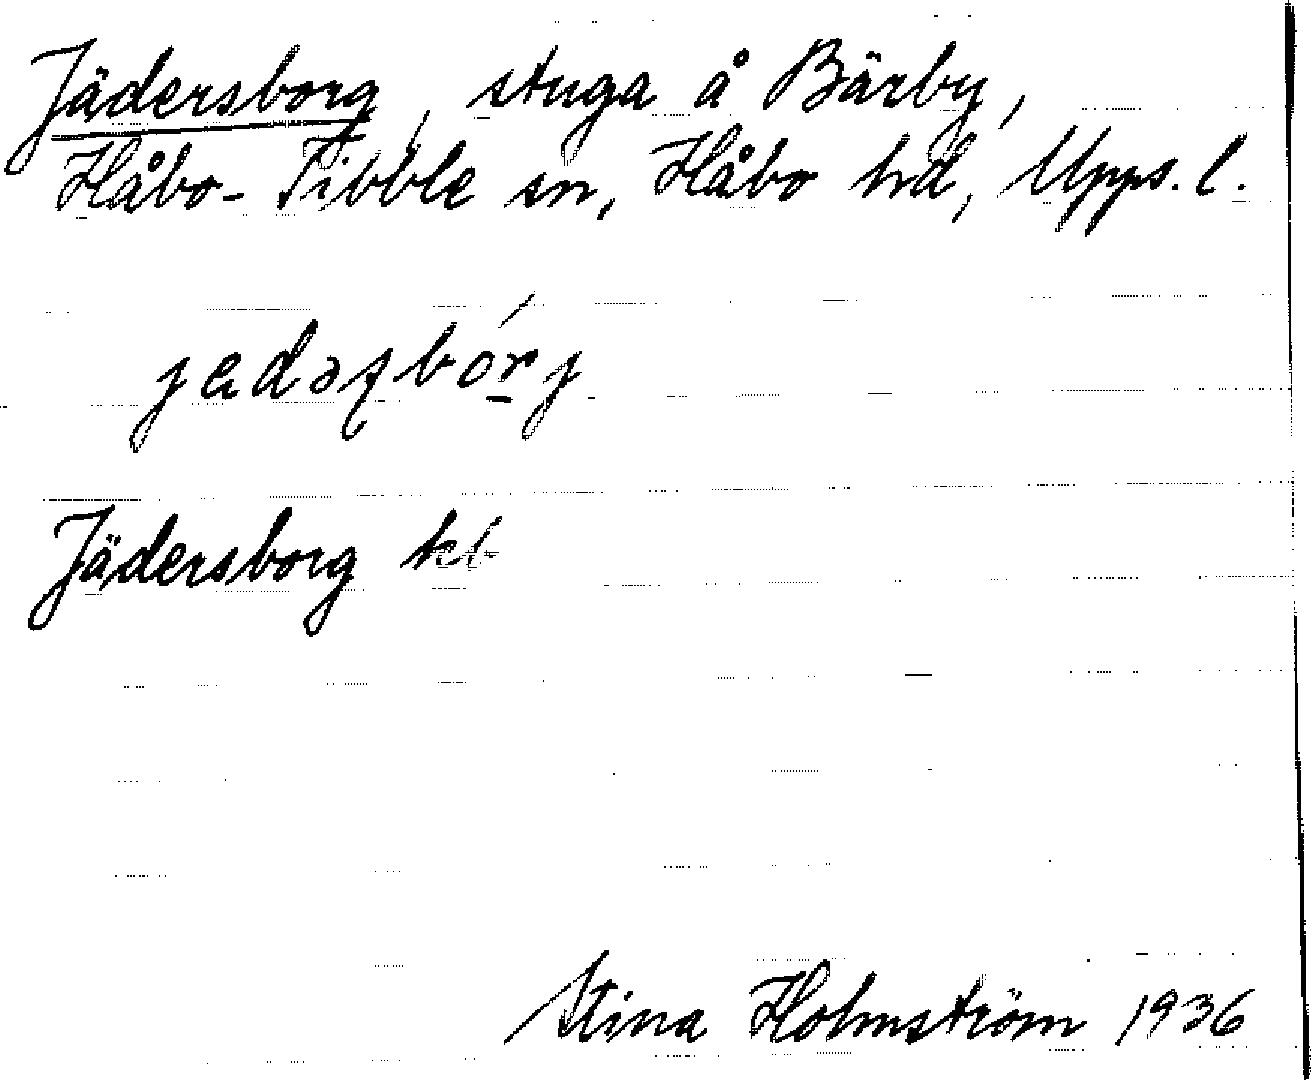 Jädersborg, stuga å Bärby,
Håbo-Tibble sn, Håbo hd, Upps. l.
Jädersborg kb
Stina Holmström 1936